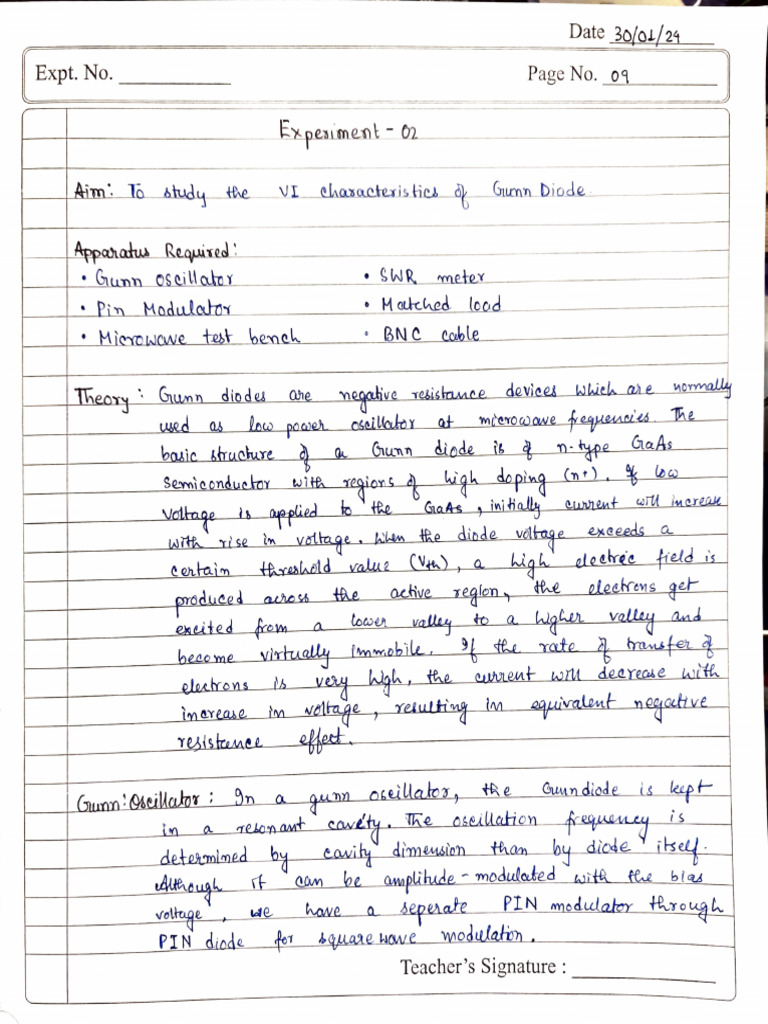 Date 30/01/24
Expt. No. ____________ Page No. 09
Experiment - 02
Aim: To study the VI characteristics of Gunn Diode.
Apparatus Required:
• Gunn oscillator • SWR meter
• Pin Modulator • Matched load
• Microwave test bench • BNC cable
Theory: Gunn diodes are negative resistance devices which are normally
used as low power oscillator at microwave frequencies. The
basic structure of a Gunn diode is of n-type GaAs
semiconductor with regions of high doping (n+). If low
voltage is applied to the GaAs, initially current will increase
with rise in voltage. When the diode voltage exceeds a
certain threshold value (Vth), a high electric field is
produced across the active region, the electrons get
excited from a lower valley to a higher valley and
become virtually immobile. If the rate of transfer of
electrons is very high, the current will decrease with
increase in voltage, resulting in equivalent negative
resistance effect.
Gunn: Oscillator: In a gunn oscillator, the Gunn diode is kept
in a resonant cavity. The oscillation frequency is
determined by cavity dimension than by diode itself.
Although it can be amplitude-modulated with the bias
voltage, we have a seperate PIN modulator through
PIN diode for square wave modulation.
Teacher's Signature : ____________